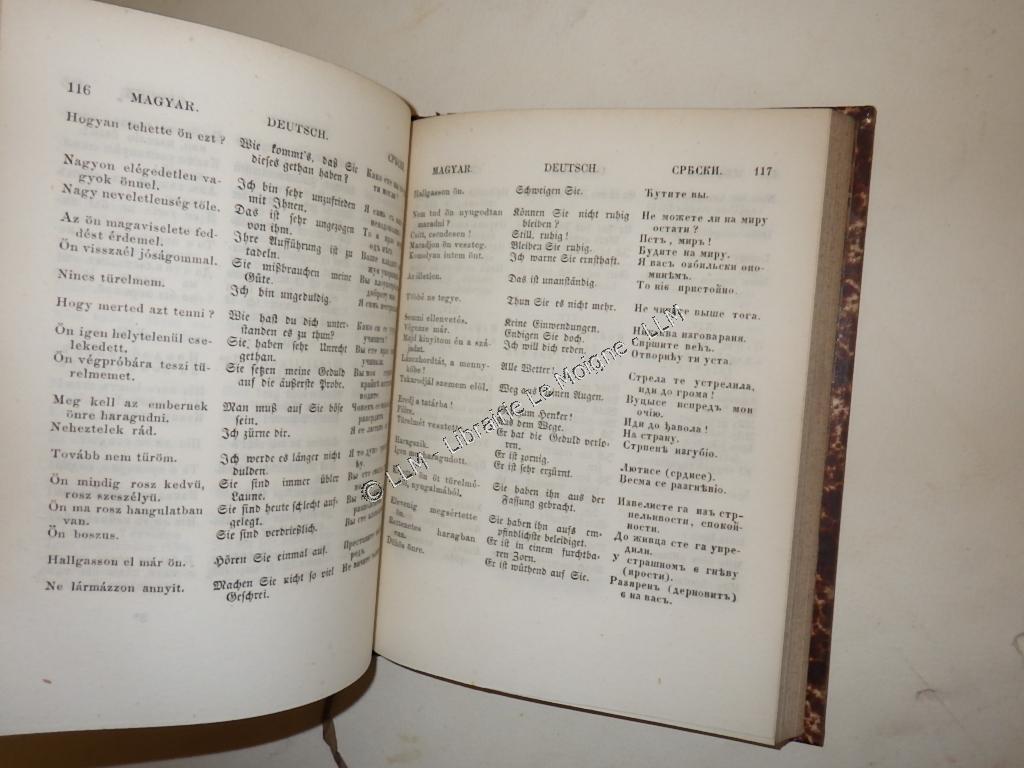 116
MAGYAR.
Hogyan tehette ön ezt?
Nagyon elégedetlen va-
gyok önnel.
Nagy neveletlenség töle.
Az ön magaviselete fed-
dést érdemel.
Ön visszaél jóságommal.
Nincs türelmem.
Hogy merted azt tenni?
Ön igen helytelenül cse-
lekedett.
Ön végpróbára teszi tü-
relmemet.
Meg kell az embernek
önre haragudni.
Neheztelek rád.
Tovább nem türöm.
Ön mindig rosz kedvű,
rosz szeszélyü.
Ön ma rosz hangulatban
van.
Ön boszus.
Hallgasson el már ön.
Ne lármázzon annyit.
DEUTSCH.
Wie kommt's, daß Sie
dieses gethan haben?
Ich bin sehr unzufrieden
mit Ihnen.
Das ist sehr ungezogen
von ihm.
Ihre Aufführung ist zu
tadeln.
Sie mißbrauchen meine
Güte.
Ich bin ungeduldig.
Wie hast du dich unter-
standen es zu thun?
Sie, haben sehr Unrecht
gethan.
Sie setzen meine Geduld
auf die äußerste Probe.
Man muß auf Sie böse
sein.
Ich zürne dir.
Ich werde es länger nicht
dulden.
Sie sind immer übler
Laune.
Sie sind heute schlecht auf-
gelegt.
Sie sind verdrießlich.
Hören Sie einmal auf.
Machen Sie nicht so viel
Geschrei.
MAGYAR.
Hallgasson ön.
Nem tud ön nyugodtan
maradni?
Csitt, csendesen!
Maradjon ön veszteg.
Komolyan intem önt.
Az illetlen.
Többé ne tegye.
Semmi ellenvetés.
Végezze már.
Majd kinyitom én a szá-
jadat.
Lánczhordtát, a menny-
köbe!
Takarodjál szemem elől.
Eredj a tatárba!
Félre.
Türelmét vesztette
Haragszik.
megharagudott.
ön öt türelmé-
nyugalmából.
Elevenig megsértette
ön.
Rettenetes haragban
van.
Dühös önre.
DEUTSCH.
Schweigen Sie.
Können Sie nicht ruhig
bleiben?
Still, ruhig!
Bleiben Sie ruhig.
Ich warne Sie ernsthaft.
Das ist unanständig.
Thun Sie es nicht mehr.
Keine Einwendungen.
Endigen Sie doch.
Ich will dich reden
Alle Wetter!
Weg aus meinen Augen.
zum Henker!
Aus dem Wege.
Er hat die Geduld verlo-
ren.
Er ist zornig.
Er ist sehr erzürnt.
Sie haben ihn aus der
Fassung gebracht.
Sie haben ihn aufs em-
pfindlichste beleidiget.
Er ist in einem furchtba-
ren Zorn.
Er ist wüthend auf Sie.
СРБСКИ. 117
Ћутите вы.
Не можете ли на миру
остати?
Пстъ, миръ!
Будите на миру.
Я васъ озбильски опо-
минѣмъ.
То ніє пристойно.
Не чините выше тога.
изговараня.
Свршите већъ.
Отворићу ти уста.
Стрела те устрелила,
иди до грома!
Вуцысе испредъ мои
очію.
Иди до ђавола!
На страну.
Стрпенѣ изгубіо.
Лютисе (срдисе).
Весма се разгнѣвіо.
Извелисте га изъ стр-
пельивости, спокой-
ности.
До живца сте га увре-
дили.
у страшномъ є гнѣву
(ярости).
Разяренъ (дерновитъ)
є на васъ.
© LLM - Librairie Le Moigne - LLM